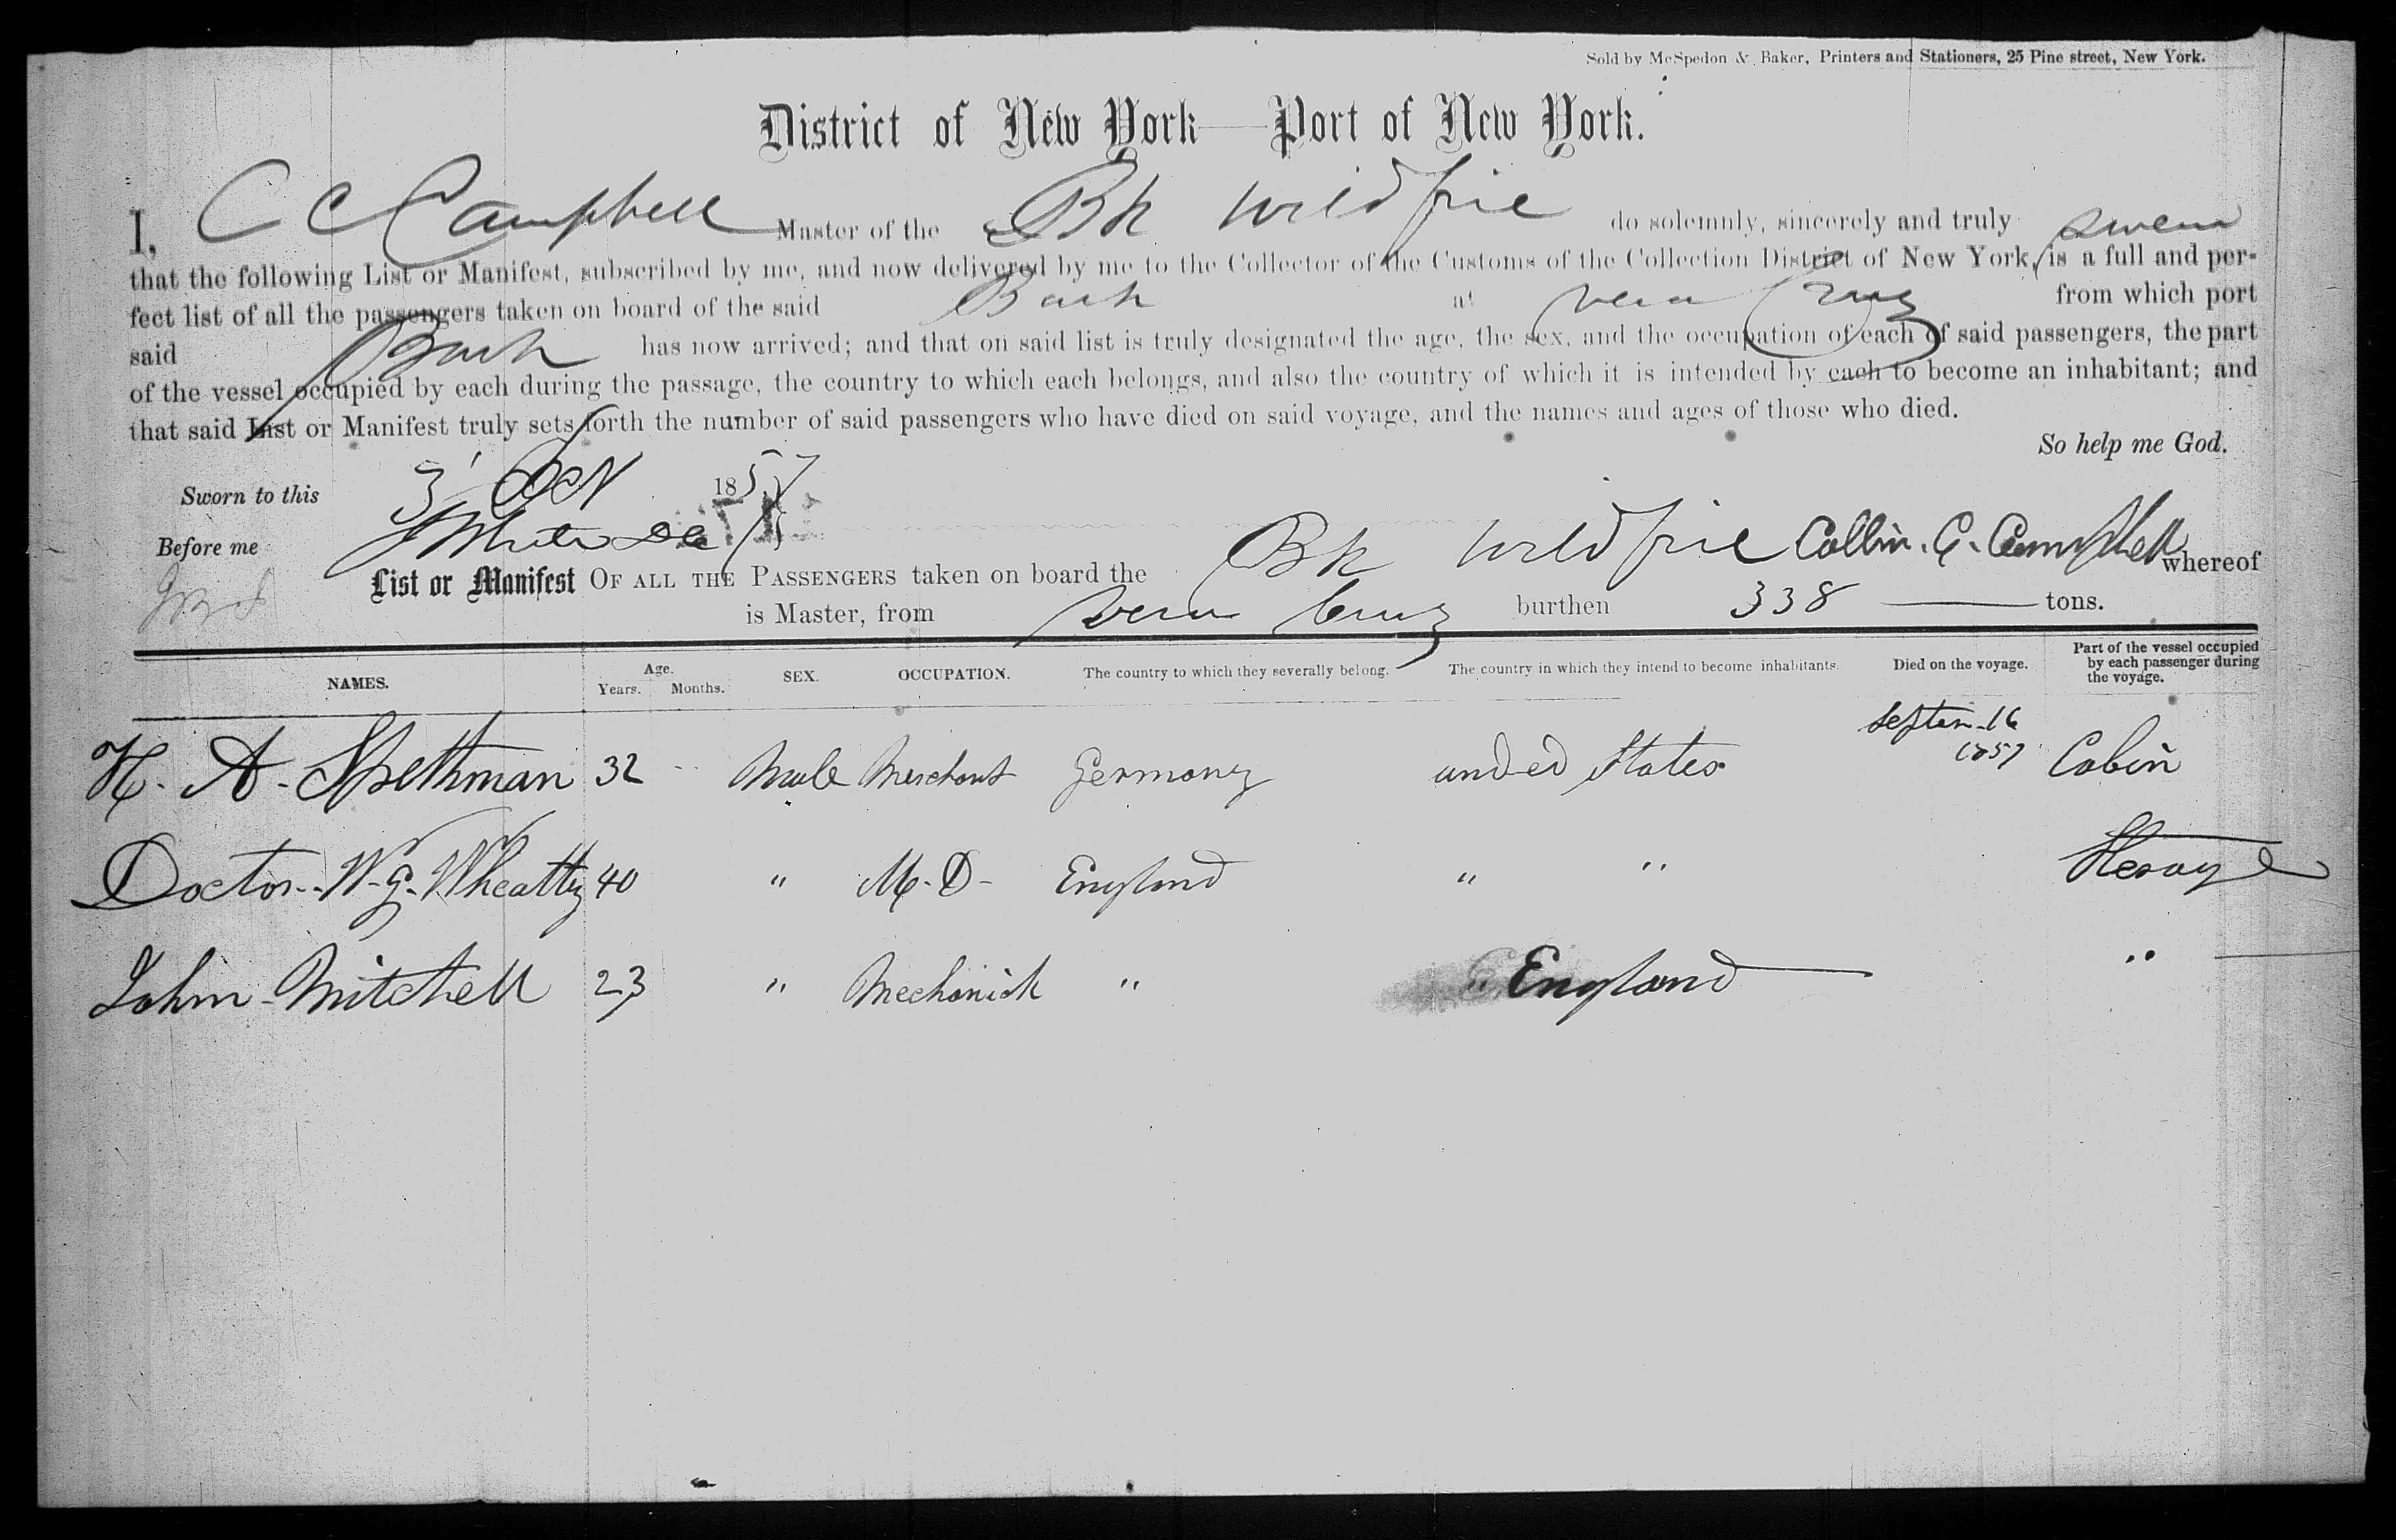 Sold by McSpedon & Baker, Printers and Stationers, 25 Pine street, New York.
District of New York—Port of New York.
I, C C Campbell Master of the Bk Wild fire do solemnly, sincerely and truly swear
that the following List or Manifest, subscribed by me, and now delivered by me to the Collector of the Customs of the Collection District of New York, is a full and per-
fect list of all the passengers taken on board of the said Bark at Vera Cruz from which port
said Bark has now arrived; and that on said list is truly designated the age, the sex, and the occupation of each of said passengers, the part
of the vessel occupied by each during the passage, the country to which each belongs, and also the country of which it is intended by each to become an inhabitant; and
that said List or Manifest truly sets forth the number of said passengers who have died on said voyage, and the names and ages of those who died.
So help me God.
Sworn to this 3 Oct 1857
Before me
List or Manifest OF ALL THE PASSENGERS taken on board the Bk Wild fire Collin. C. Campbell whereof
is Master, from Vera Cruz burthen 338 tons.
NAMES. Age. Years. Months. SEX. OCCUPATION. The country to which they severally belong. The country in which they intend to become inhabitants. Died on the voyage. Part of the vessel occupied by each passenger during the voyage.
H. A. Spethman 32 Male Merchant Germany united States Septem. 16 1857 Cabin
Doctor. W. G. Wheatty 40 " M. D - England " " Sterage
John Mitchell 23 " Mechanick " England "